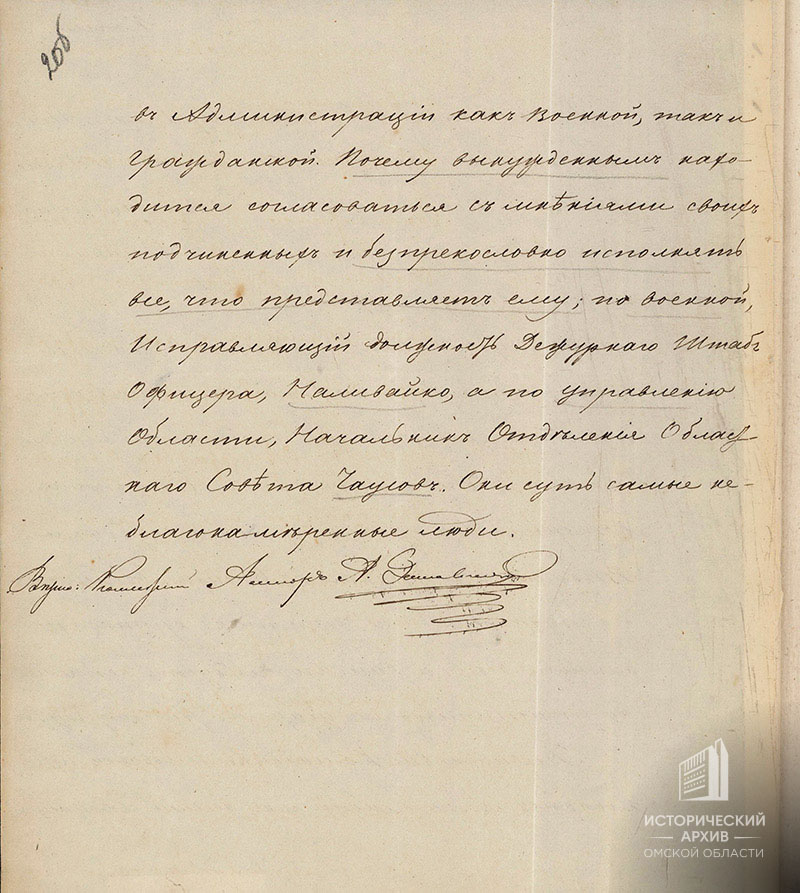 206
въ Администраціи какъ Военной, такъ и
Гражданской. Почему вынужденнымъ нахо-
дится согласоваться съ мнѣніями своихъ
подчиненныхъ и безпрекословно исполнять
все, что представляетъ ему; по военной,
Исправляющій должность Дежурнаго Штабъ
Офицера, Наливайко, а по управленію
Области, Начальникъ Отдѣленія Област-
наго Совѣта Чаусовъ. Они суть самые не-
благонамѣренные люди.
Ассесоръ А.
ИСТОРИЧЕСКИЙ
АРХИВ
ОМСКОЙ ОБЛАСТИ